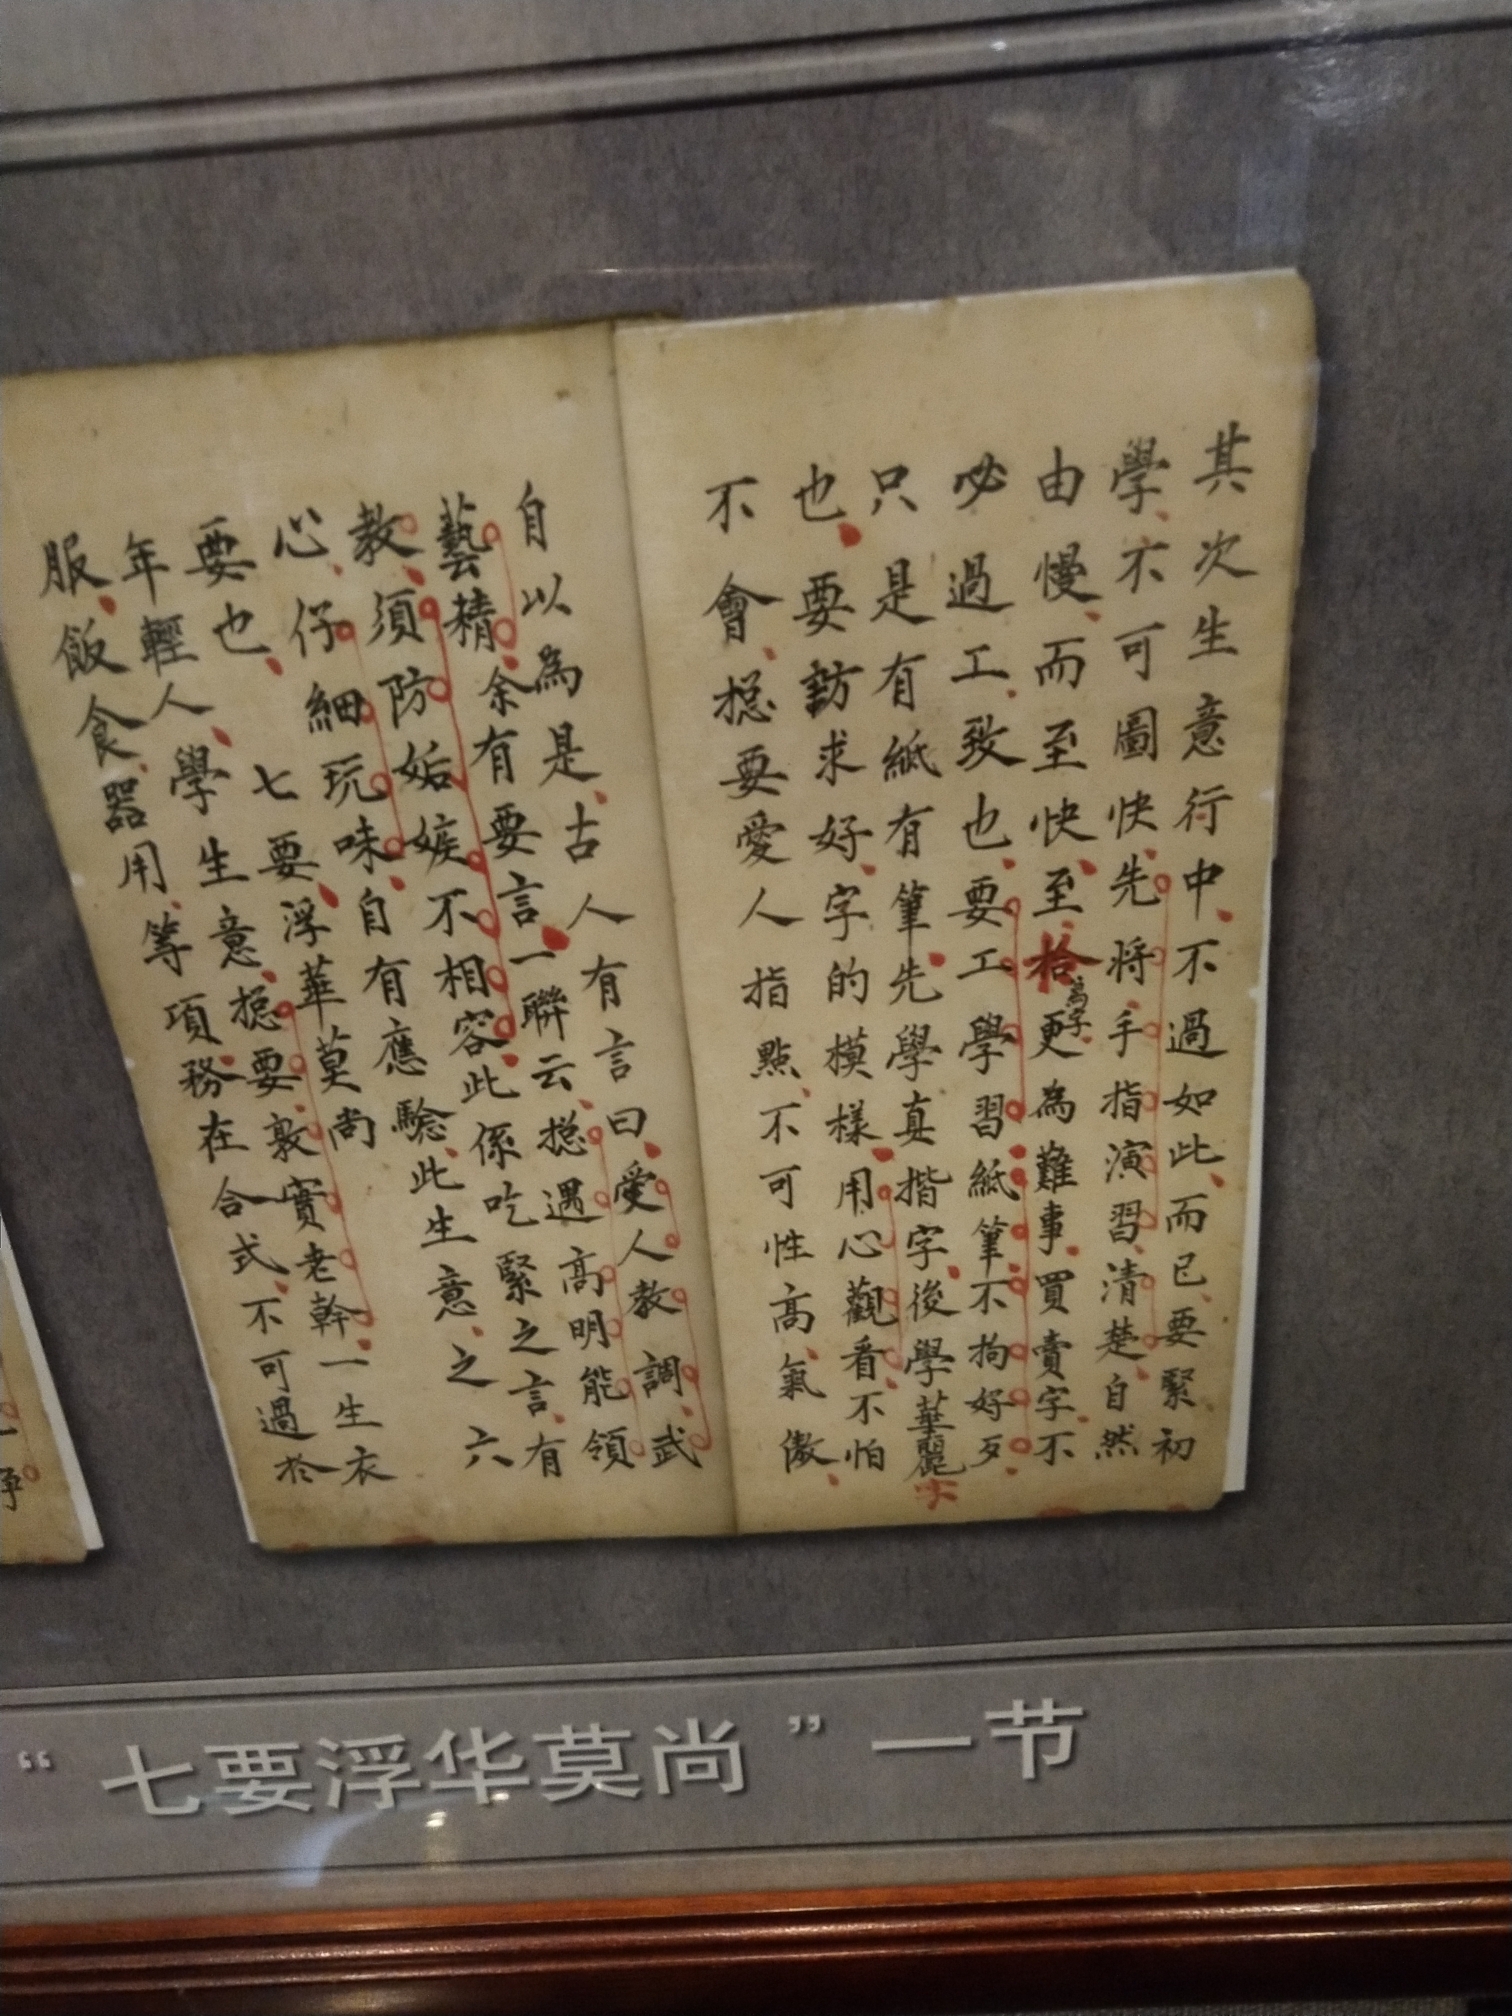 其次生意行中不過如此而已要緊初
學不可圖快先將手指演習清楚自然
由慢而至快至拾萬字更為難事買賣字不
必過工致也要工學習紙筆不拘好歹
只是有紙有筆先學真楷字後學華麗字
也要訪求好字的模樣用心觀看不怕
不會摠要愛人指點不可性高氣傲
自以為是古人有言曰愛人教調武
藝精余有要言一聯云摠遇高明能領
教須防妬嫉不相容此係吃緊之言有
心仔細玩味自有應驗此生意之六
要也 七要浮華莫尚
年輕人學生意摠要敦實老幹一生衣
服飯食器用等項務在合式不可過於
“七要浮华莫尚”一节